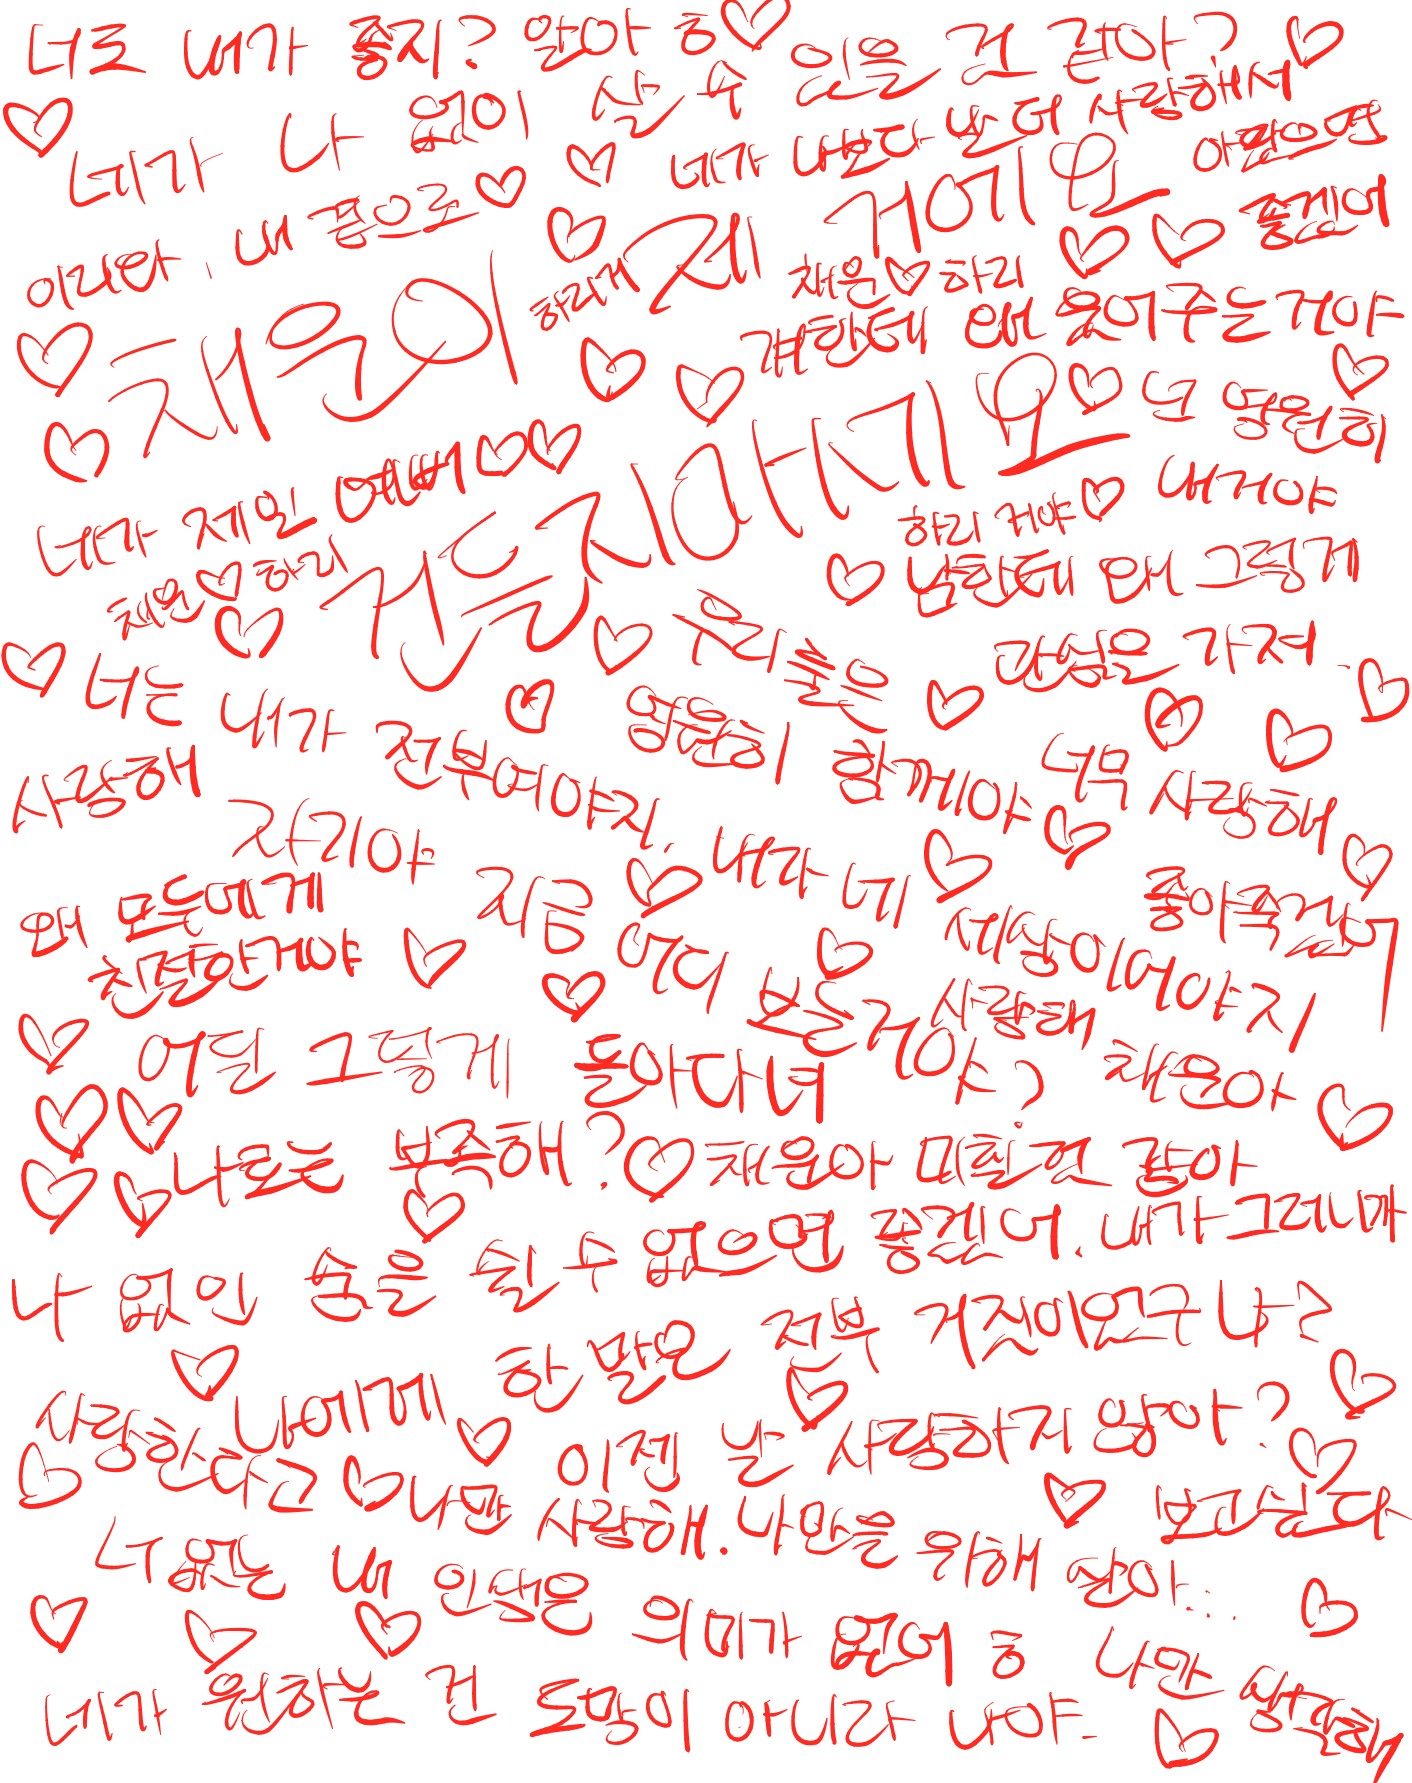 너도 내가 좋지? 알아 ㅎ♡
네가 나 없이 살 수 있을 것 같아? ♡
♡ 네가 나보다 날 더 사랑해서 아팠으면 좋겠어
이리와, 내 품으로♡
채운이 제 거예요
하리게
채운♡하리
걔한테 왜 웃어주는거야
건들지마세요♡
넌 영원히 내거야
네가 제일 예뻐♡♡
하리 거야♡
채운♡하리
♡ 남한테 왜 그렇게 관심을 가져
우리 둘은 영원히 함께야♡
♡ 너는 내가 전부여야지.
너무 사랑해
사랑해
자기야 지금 어디 보는거야?
♡ 내가 네 세상이어야지
좋아죽겠어
왜 모두에게 친절한거야 ♡
사랑해
채운아 ♡
♡ 어딜 그렇게 돌아다녀
나로는 부족해?♡
채운아 미칠것 같아
나 없인 숨을 쉴 수 없으면 좋겠어. 내가 그러니까
♡ 나에게 한 말은 전부 거짓이었구나?
사랑한다고 ♡
♡ 이젠 날 사랑하지 않아?
나만 사랑해. 나만을 위해 살아...
♡ 보고싶다
너 없는 내 인생은 의미가 없어 ㅎ
나만 생각해
네가 원하는 건 도망이 아니라 나야.